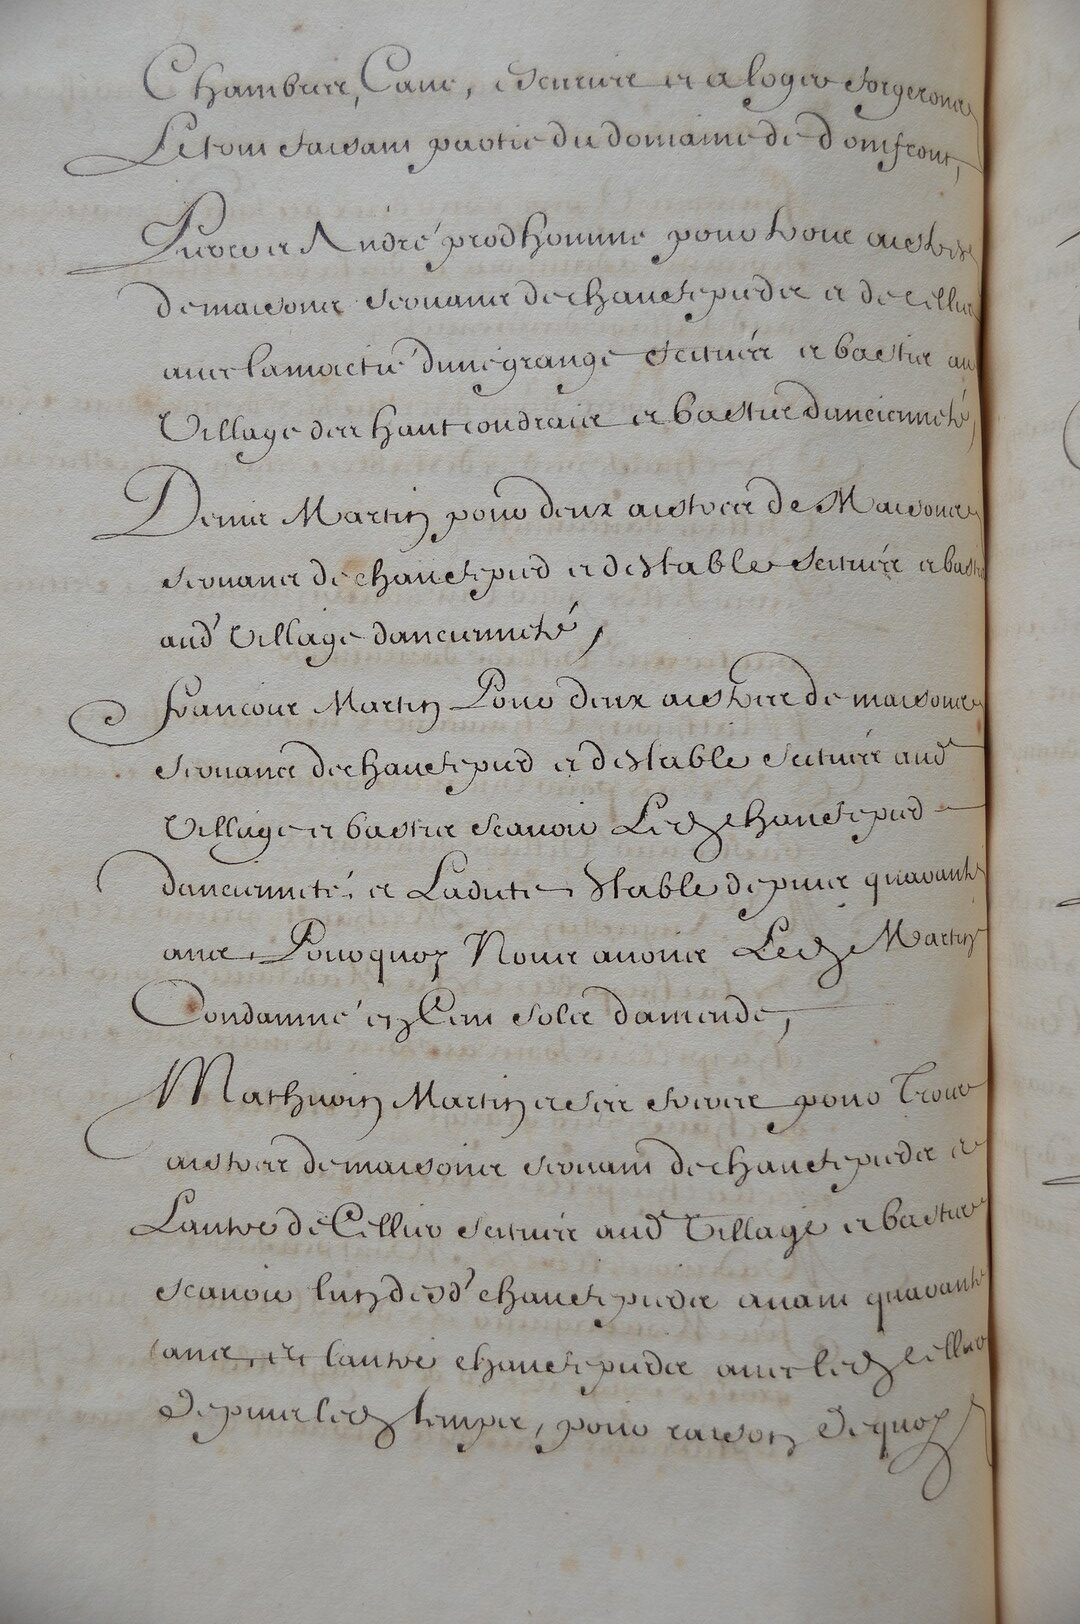 Chambres, Cave, escurie et a loger forgerons
Le tout faisant partie du domaine de domfront,
Pierre et André prodhomme pour trois aistres
de maisons servans de chauffepieds et de cellier
avec la moictié dune grange scituées et basties au
Village des haut coudrais et basties dancienneté,
Denis Martin pour deux aistres de Maisons
servans de chauffepied et destable scituées et basties
aud Village dancienneté,
francois Martin Pour deux aistres de maisons
servans de chauffepied et destable scituées aud
Village et basties scavoir Led chauffepied
dancienneté, et Ladite stable depuis quarante
ans, Pourquoy Nous avons Led Martin
Condamné en Cent solz damende,
Mathurin Martin et ses freres pour Trois
aistres de maisons servant de chauffepieds et
Lautre de Cellier scituées aud Village et basties
scavoir lun desd chauffepieds avant quarante
ans, et lautre chauffepieds avec led cellier
depuis led temps, pour raison dequoy